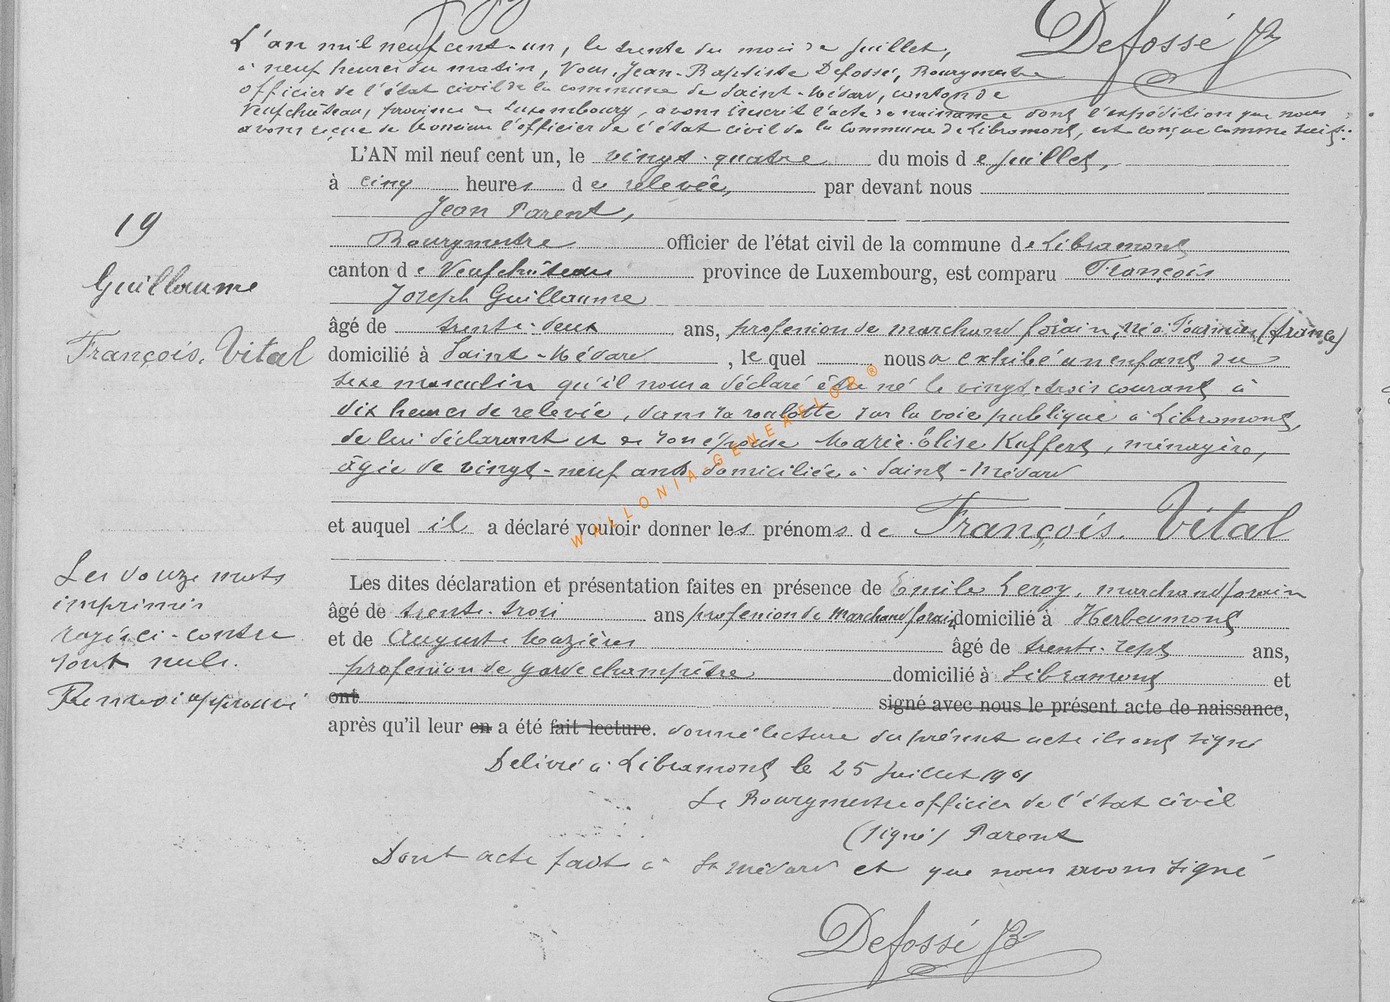 Defossé JB
L'an mil neuf cent-un, le trente du mois de juillet,
à neuf heures du matin, Nous, Jean-Baptiste Defossé, Bourgmestre
officier de l'état civil de la commune de Saint-Médard, canton de
Neufchâteau, province de Luxembourg, avons inscrit l'acte de naissance dont l'expédition que nous
avons reçue de Monsieur l'officier de l'état civil de la commune de Libramont, est conçue comme suit:
L'AN mil neuf cent un, le vingt-quatre du mois de juillet,
à cinq heures de relevée, par devant nous
Jean Parent,
19
Bourgmestre officier de l'état civil de la commune de Libramont
canton de Neufchâteau province de Luxembourg, est comparu François
Guillaume
Joseph Guillaume
âgé de trente-deux ans, profession de marchand forain, né à (france)
François. Vital
domicilié à Saint-Médard, lequel nous a exhibé un enfant du
sexe masculin qu'il nous a déclaré être né le vingt-trois courant à
dix heures de relevée, dans sa roulotte sur la voie publique à Libramont,
de lui déclarant et de son épouse Marie-Élise Kuffert, ménagère,
âgée de vingt-neuf ans domiciliée à Saint-Médard
WALLONIA-GENEA-FLOR®
et auquel il a déclaré vouloir donner les prénoms de François. Vital
Les dites déclaration et présentation faites en présence de Emile Leroy, marchand forain
âgé de trente-trois ans profession de Marchand forain domicilié à Herbeumont
et de Auguste Mazières âgé de trente-sept ans,
profession de garde champêtre domicilié à Libramont et
ont signé avec nous le présent acte de naissance,
après qu'il leur en a été fait lecture. donné lecture du présent acte ils ont signé
Les douze mots
imprimés
rayés ci-contre
sont nuls.
Renvoi approuvé
Délivré à Libramont le 25 juillet 1901
Le Bourgmestre officier de l'état civil
(signé) Parent
Dont acte fait à St Médard et que nous avons signé
Defossé JB